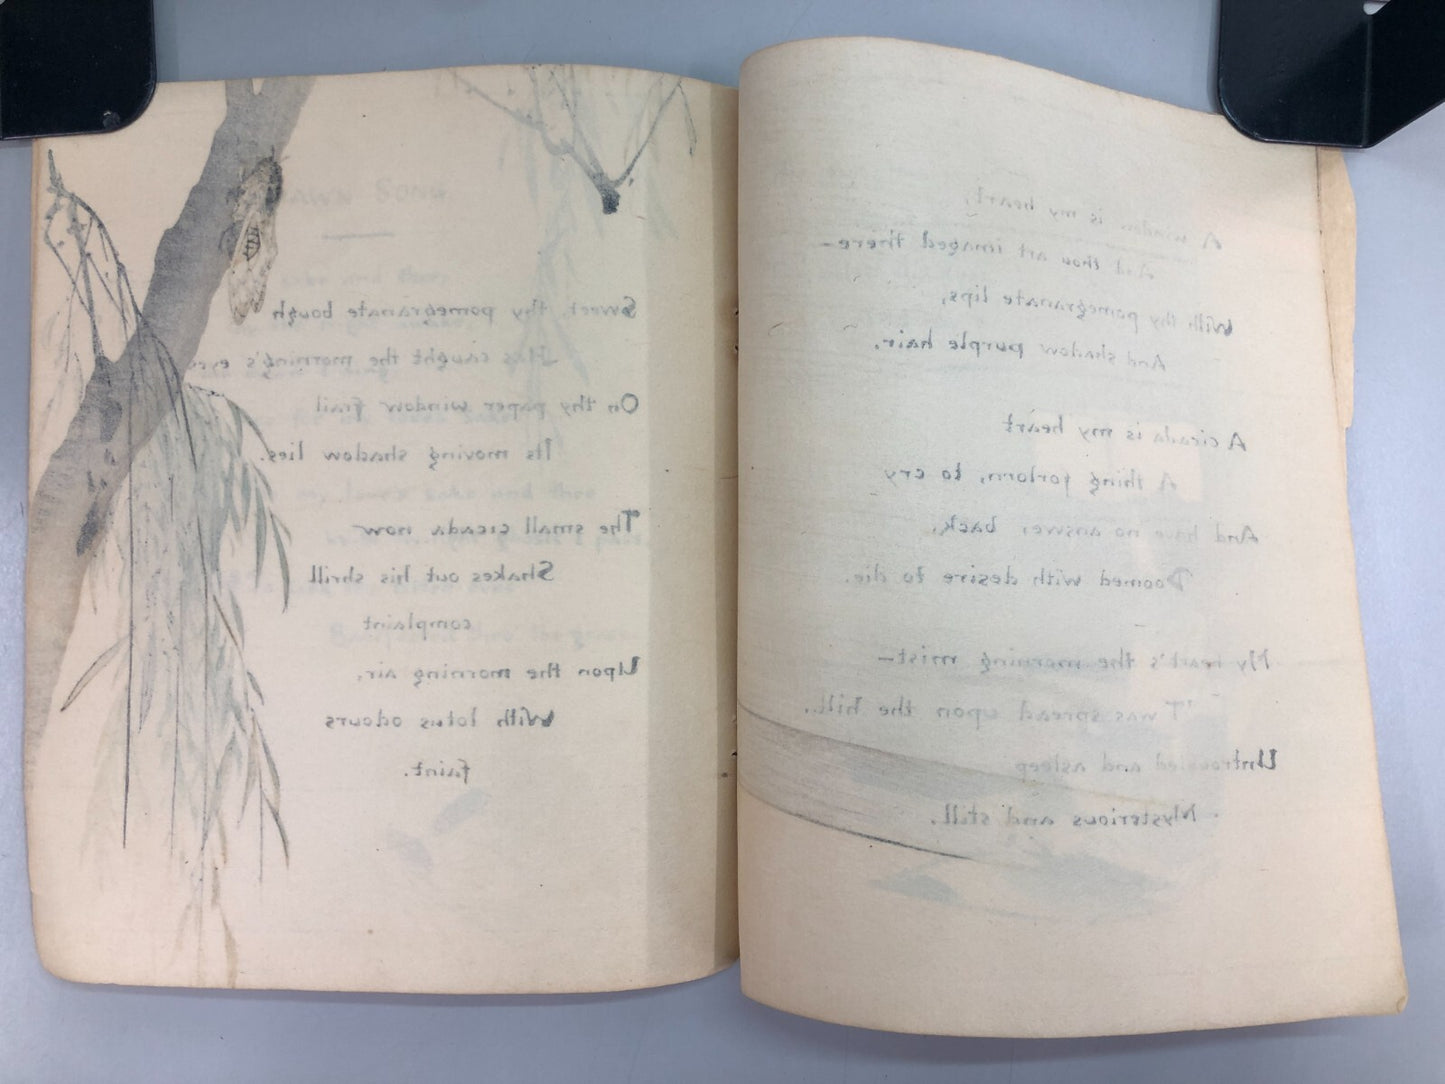 Sweet, thy pomegranate bough
Has caught the morning's eye
On thy paper window frail
Its moving shadow lies.
The small cicada now
Shakes out his shrill
complaint
Upon the morning air,
With lotus odours
faint.
A window is my heart,
And thou art imaged there—
With thy pomegranate lips,
And shadow purple hair.
A cicada is my heart
A thing forlorn, to cry
And have no answer back,
Doomed with desire to die.
My heart's the morning mist—
'T was spread upon the hill.
Untroubled and asleep
Mysterious and still.
DAWN SONG